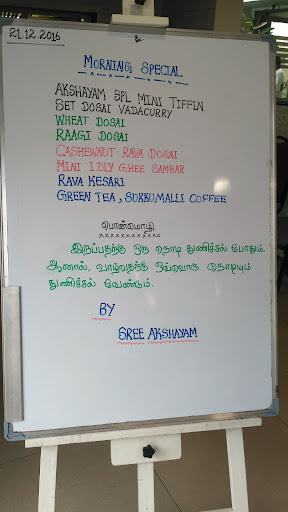 21.12.2016
MORNING SPECIAL
AKSHAYAM SPL MINI TIFFIN
SET DOSAI VADACURRY
WHEAT DOSAI
RAAGI DOSAI
CASHEWNUT RAVA DOSAI
MINI IDLY GHEE SAMBAR
RAVA KESARI
GREEN TEA, SUKKUMALLI COFFEE
பொன்மொழி
இருப்பதற்கு ஒரு நொடி துணிச்சல் போதும்.
ஆனால், வாழ்வதற்கு ஒவ்வொரு நொடியும்
துணிச்சல் வேண்டும்.
BY
SREE AKSHAYAM